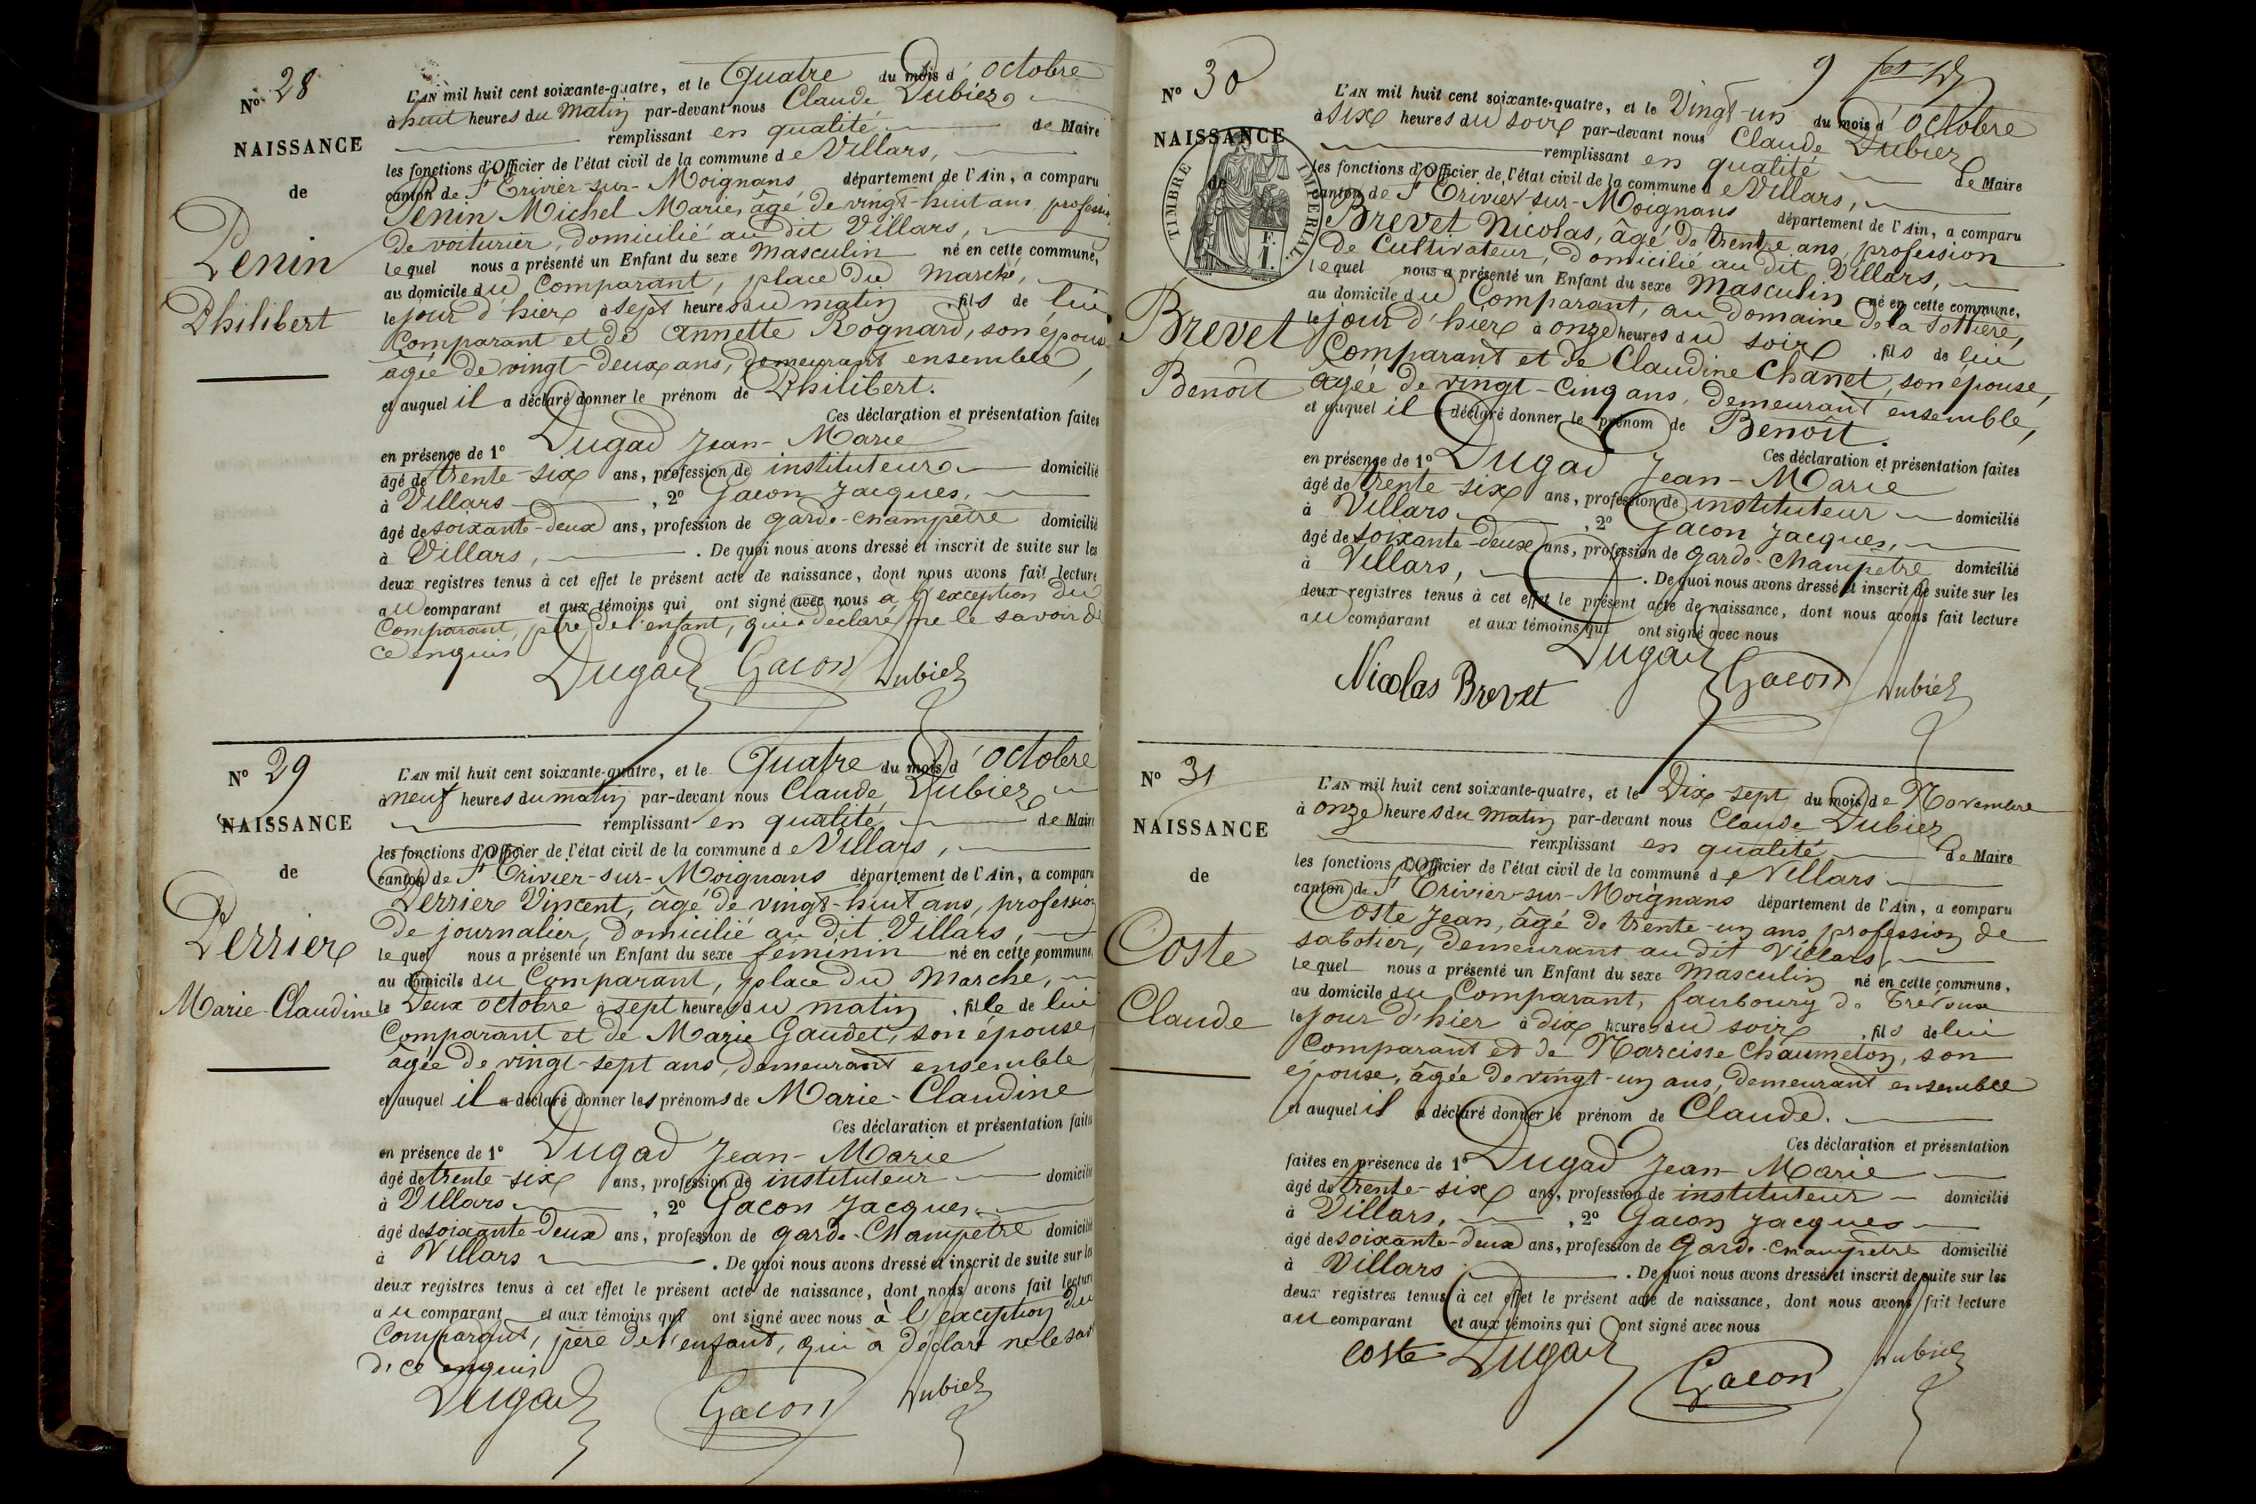 N° 28
NAISSANCE
de
Penin
Philibert
L'AN mil huit cent soixante-quatre, et le Quatre du mois d'octobre
à huit heures du matin par-devant nous Claude Dubiez
remplissant en qualité de Maire
les fonctions d'Officier de l'état civil de la commune de Villars,
canton de St Trivier-sur-Moignans département de l'Ain, a comparu
Penin Michel Marie, âgé de vingt-huit ans, profession
de voiturier, domicilié au dit Villars,
lequel nous a présenté un Enfant du sexe masculin né en cette commune,
au domicile du Comparant, place du Marché,
le jour d'hier à sept heures du matin, fils de lui
Comparant et de Annette Rognard, son épouse
âgée de vingt-deux ans, demeurant ensemble,
et auquel il a déclaré donner le prénom de Philibert.
Ces déclaration et présentation faites
en présence de 1° Dugad Jean-Marie
âgé de trente-six ans, profession de instituteur domicilié
à Villars, 2° Gacon Jacques,
âgé de soixante-deux ans, profession de garde-champêtre domicilié
à Villars, . De quoi nous avons dressé et inscrit de suite sur les
deux registres tenus à cet effet le présent acte de naissance, dont nous avons fait lecture
au comparant et aux témoins qui ont signé avec nous à l'exception du
Comparant, père de l'enfant, qui a déclaré ne le savoir de
ce enquis
Dugad Gacon Dubiez
N° 29
NAISSANCE
de
Perrier
Marie-Claudine
L'AN mil huit cent soixante-quatre, et le Quatre du mois d'octobre
à neuf heures du matin par-devant nous Claude Dubiez
remplissant en qualité de Maire
les fonctions d'Officier de l'état civil de la commune de Villars,
canton de St Trivier-sur-Moignans département de l'Ain, a comparu
Perrier Vincent, âgé de vingt-huit ans, profession
de journalier, domicilié au dit Villars,
lequel nous a présenté un Enfant du sexe féminin né en cette commune,
au domicile du Comparant, place du Marché,
le Deux octobre à sept heures du matin, fille de lui
Comparant et de Marie Gaudet, son épouse
âgée de vingt-sept ans, demeurant ensemble
et auquel il a déclaré donner les prénoms de Marie-Claudine
Ces déclaration et présentation faites
en présence de 1° Dugad Jean-Marie
âgé de trente-six ans, profession de instituteur domicilié
à Villars, 2° Gacon Jacques,
âgé de soixante-deux ans, profession de garde-Champêtre domicilié
à Villars . De quoi nous avons dressé et inscrit de suite sur les
deux registres tenus à cet effet le présent acte de naissance, dont nous avons fait lecture
au comparant et aux témoins qui ont signé avec nous à l'exception du
Comparant, père de l'enfant, qui a déclaré ne le
de ce enquis
Dugad Gacon Dubiez
9
N° 30
NAISSANCE
de
TIMBRE IMPERIAL.
F.
1.
Brevet
Benoît
L'AN mil huit cent soixante-quatre, et le Vingt-un du mois d'octobre
à six heures du soir par-devant nous Claude Dubiez
remplissant en qualité de Maire
les fonctions d'Officier de l'état civil de la commune de Villars,
canton de St Trivier-sur-Moignans département de l'Ain, a comparu
Brevet Nicolas, âgé de trente ans, profession
de Cultivateur, domicilié au dit Villars,
lequel nous a présenté un Enfant du sexe Masculin né en cette commune,
au domicile du Comparant, au domaine de la
le jour d'hier à onze heures du soir, fils de lui
Comparant et de Claudine Chanet, son épouse,
âgée de vingt-cinq ans, demeurant ensemble,
et auquel il a déclaré donner le prénom de Benoît.
Ces déclaration et présentation faites
en présence de 1° Dugad Jean-Marie
âgé de trente-six ans, profession de instituteur domicilié
à Villars, 2° Gacon Jacques,
âgé de soixante-deux ans, profession de garde-champêtre domicilié
à Villars, . De quoi nous avons dressé et inscrit de suite sur les
deux registres tenus à cet effet le présent acte de naissance, dont nous avons fait lecture
au comparant et aux témoins qui ont signé avec nous
Nicolas Brevet Dugad Gacon Dubiez
N° 31
NAISSANCE
de
Coste
Claude
L'AN mil huit cent soixante-quatre, et le Dix-sept du mois de Novembre
à onze heures du matin par-devant nous Claude Dubiez
remplissant en qualité de Maire
les fonctions d'Officier de l'état civil de la commune de Villars
canton de St Trivier-sur-Moignans département de l'Ain, a comparu
Coste Jean, âgé de trente-un ans, profession de
sabotier, demeurant au dit Villars,
lequel nous a présenté un Enfant du sexe masculin né en cette commune,
au domicile du Comparant, faubourg de Trévoux
le jour d'hier à dix heures du soir, fils de lui
Comparant et de Narcisse Chaumeton, son
épouse, âgée de vingt-un ans, demeurant ensemble
et auquel il a déclaré donner le prénom de Claude.
Ces déclaration et présentation
faites en présence de 1° Dugad Jean-Marie
âgé de trente-six ans, profession de instituteur domicilié
à Villars, 2° Gacon Jacques
âgé de soixante-deux ans, profession de Garde-champêtre domicilié
à Villars . De quoi nous avons dressé et inscrit de suite sur les
deux registres tenus à cet effet le présent acte de naissance, dont nous avons fait lecture
au comparant et aux témoins qui ont signé avec nous
coste Dugad Gacon Dubiez